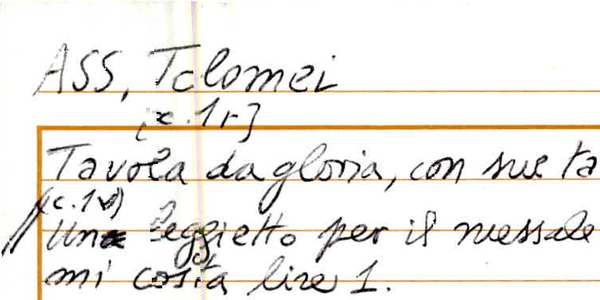 ASS, Tolomei
[c. 1r]
Tavola da gloria, con sue ta
(c. 1v)
// Un leggietto per il messale
mi costa lire 1.